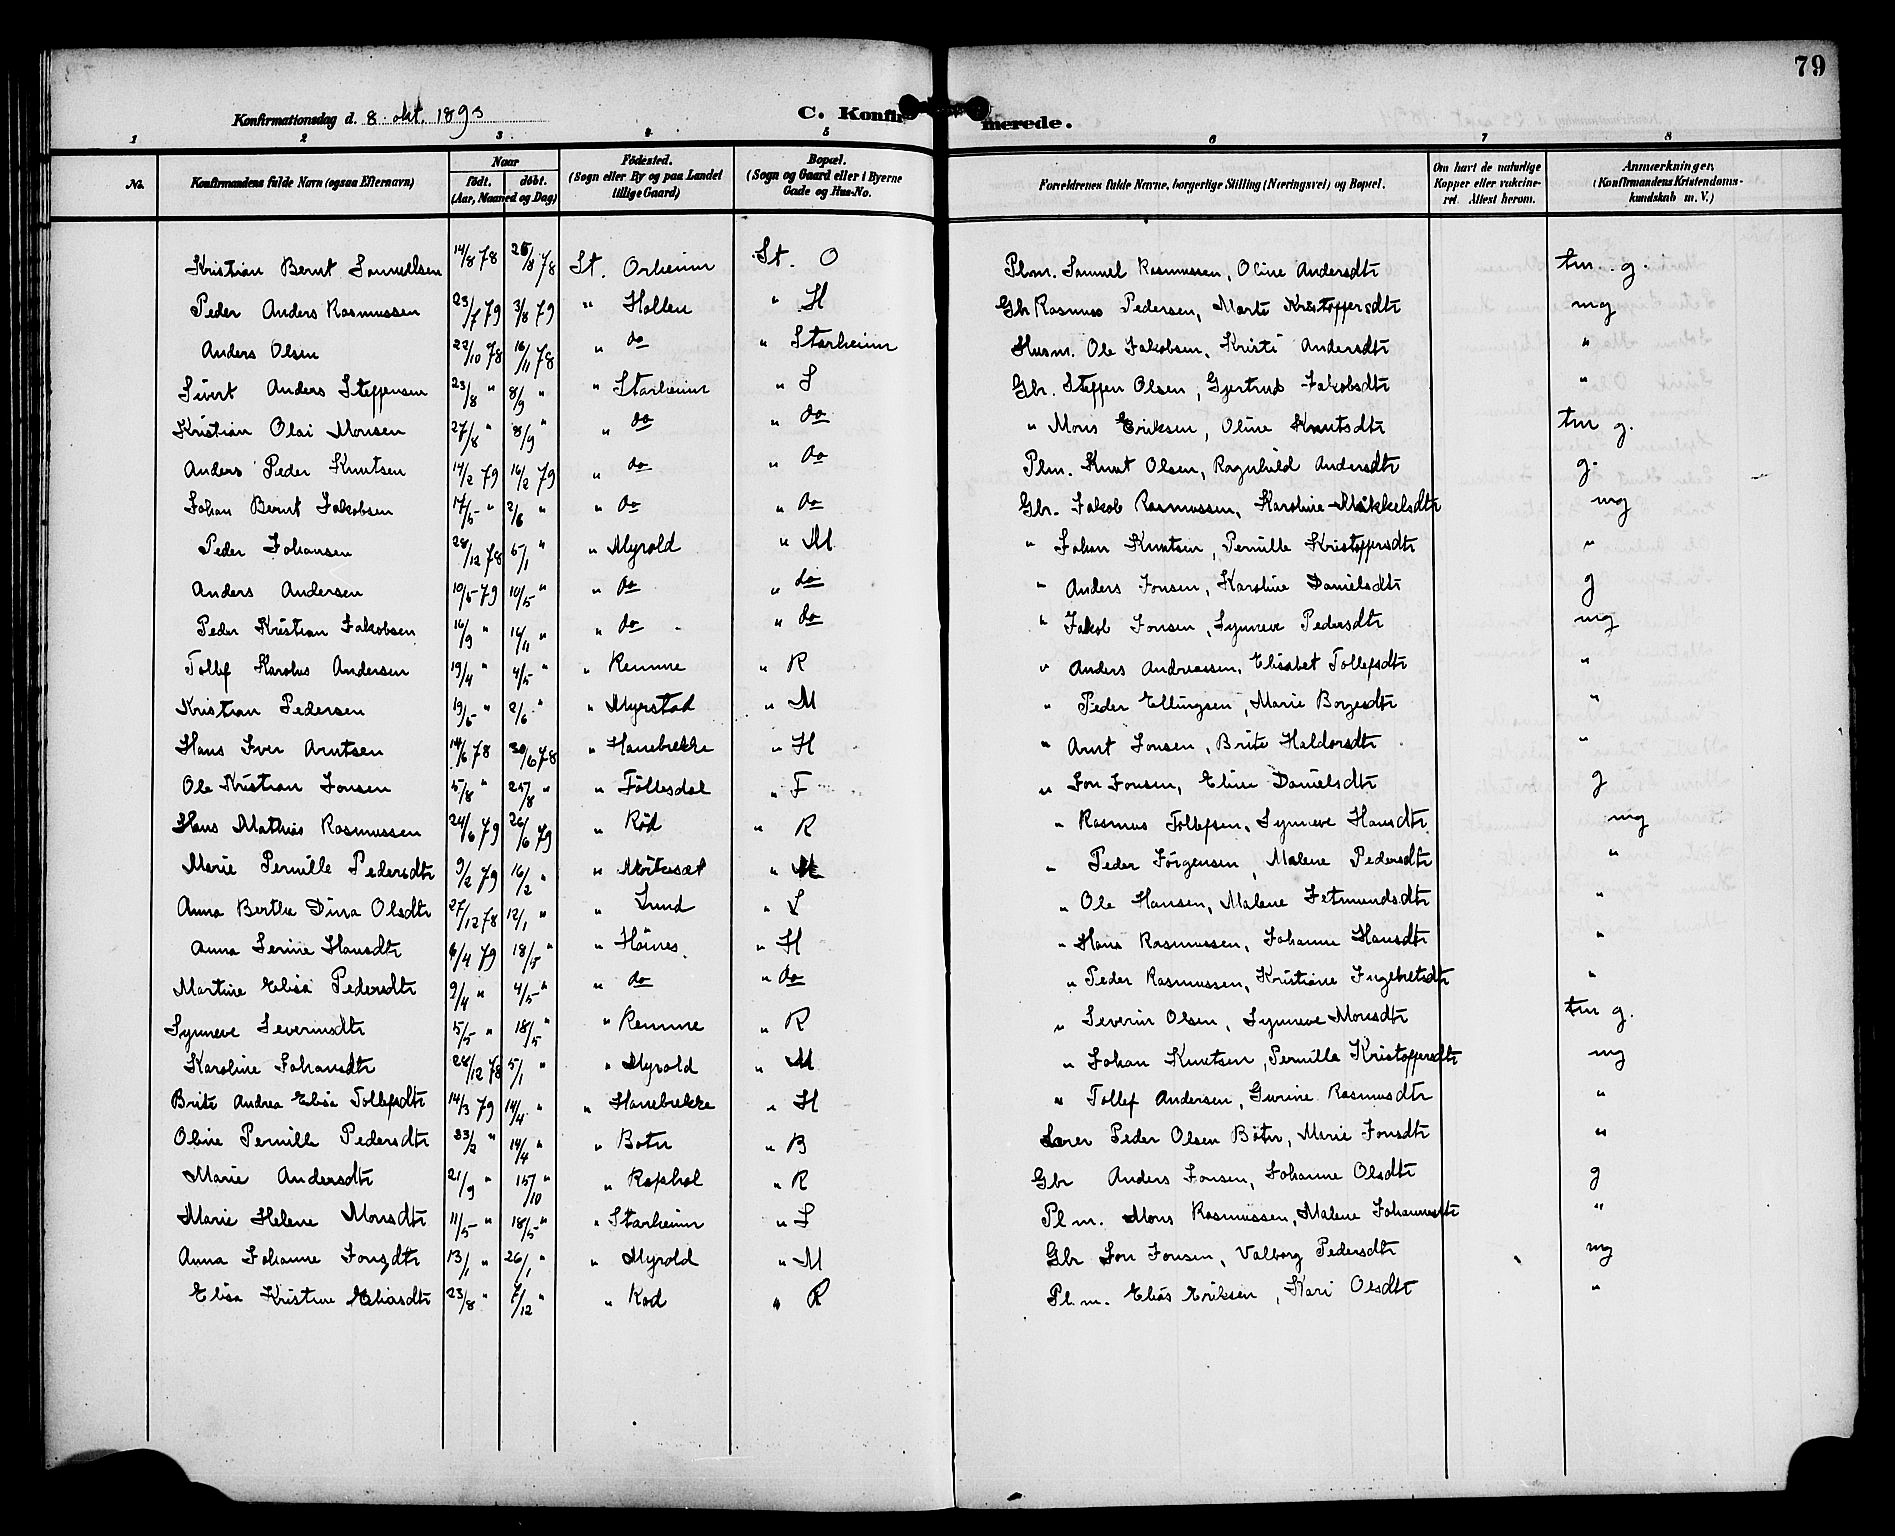 79
Konfirmationsdag d. 8. okt. 1893
C. Konfirmerede.
1 2 3 4 5 6 7 8
No. Konfirmandens fulde Navn (ogsaa Efternavn) Naar født. døbt. (Aar, Maaned og Dag) Fødested. (Sogn eller By og paa Landet tillige Gaard) Bopæl. (Sogn og Gaard eller i Byerne Gade og Hus-No. Forældrenes fulde Navne, borgerlige Stilling (Næringsvei) og Bopæl. Om havt de naturlige Kopper eller vakcineret. Attest herom. Anmærkninger, (Konfirmandens Kristendomskundskab m. V.)
Kristian Bernt Samuelsen 14/8 78 25/8 78 St. Orheim St. O Plm. Samuel Rasmussen, Oline Andersdtr tm. g.
Peder Anders Rasmussen 23/7 79 3/8 79 " Hollen " H Gbr Rasmus Pedersen, Marte Kristoffersdtr mg
Anders Olsen 22/10 78 16/11 78 " do " Starheim Husm. Ole Jakobsen, Kristi Andersdtr "
Sivert Anders Steffensen 23/8 " 8/9 " " Starheim " S Gbr. Steffen Olsen, Gjertrud Jakobsdtr "
Kristian Olai Monsen 27/8 " 8/9 " " do " do " Mons Eriksen, Oline Knutsdtr tm g.
Anders Peder Knutsen 14/2 79 16/2 79 " do " do Plm. Knut Olsen, Ragnhild Andersdtr g.
Johan Bernt Jakobsen 17/5 " 2/6 " " do " do Gbr. Jakob Rasmussen, Karoline Mikkelsdtr mg
Peder Johansen 28/12 78 5/1 " " Myrold " M " Johan Knutsen, Pernille Kristoffersdtr "
Anders Andersen 10/5 79 10/5 " " do " do " Anders Jonsen, Karoline Danielsdtr g
Peder Kristian Jakobsen 16/9 " 16/11 " " do " do " Jakob Jonsen, Synneve Pedersdtr mg
Tollef Karolus Andersen 19/4 " 4/5 " " Remme " R " Anders Andreassen, Elisabet Tollefsdtr "
Kristian Pedersen 19/5 " 2/6 " " Myrstad " M " Peder Ellingsen, Marie Borgesdtr "
Hans Iver Arntsen 14/6 78 30/6 78 " Hanebrekke " H " Arnt Jonsen, Brite Haldorsdtr "
Ole Kristian Jonsen 5/8 " 25/8 " " Föllesdal " F " Jon Jonsen, Eline Danielsdtr g
Hans Mathias Rasmussen 24/6 79 26/6 79 " Rød " R " Rasmus Tollefsen, Synneve Hansdtr mg
Marie Pernille Pedersdtr 9/2 79 16/2 " " " M " Peder Jörgensen, Malene Pedersdtr "
Anna Berthe Dina Olsdtr 27/12 78 12/1 " " Lund " L " Ole Hansen, Malene Jetmundsdtr "
Anna Serine Hansdtr 6/4 79 18/5 " " Höines " H " Hans Rasmussen, Johanne Hansdtr "
Martine Elisa Pedersdtr 9/4 " 4/5 " " do " do " Peder Rasmussen, Kristiane Ingebretsdtr "
Synneve Severinsdtr 5/5 " 18/5 " " Remme " R " Severin Olsen, Synneve Monsdtr tm g.
Karoline Johansdtr 28/12 78 5/1 " " Myrold " M " Johan Knutsen, Pernille Kristoffersdtr mg
Brite Andrea Elisa Tollefsdtr 14/3 79 14/4 " " Hanebrekke " H " Tollef Andersen, Gurine Rasmusdtr "
Oline Pernille Pedersdtr 23/2 " 14/4 " " Botn " B Lærer Peder Olsen Botn, Marie Jonsdtr "
Marie Andersdtr 21/9 " 15/10 " " " R Gbr Anders Jonsen, Johanne Olsdtr g
Marie Helene Monsdtr 11/5 " 18/5 " " Starheim " S Plm. Mons Rasmussen, Malene Johannesdtr "
Anna Johanne Jonsdtr 13/1 " 26/1 " " Myrold " M Gbr Jon Jonsen, Valborg Pedersdtr mg
Elisa Kristine Eliasdtr 23/8 " 7/12 " " Rød " R Pl.m. Elias Eriksen, Kari Olsdtr "